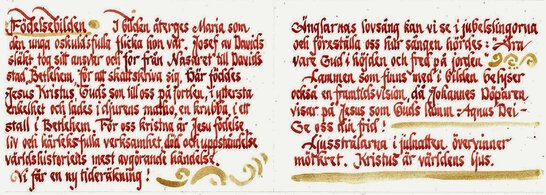 Födelsebilden I bilden återges Maria som
den unga oskuldsfulla flicka hon var. Josef av Davids
släkt tog sitt ansvar och for från Nasaret till Davids
stad, Betlehem, för att skattskriva sig. Här föddes
Jesus Kristus, Guds son till oss på jorden, i yttersta
enkelhet och lades i djurens matho, en krubba i ett
stall i Betlehem. För oss kristna är Jesu födelse,
liv och kärleksfulla verksamhet, död och uppståndelse
världshistoriens mest avgörande händelse.
Vi får en ny tideräkning!
Änglarnas lovsång kan vi se i jubelslingorna
och föreställa oss hur sången hördes: Ära
vare Gud i höjden och fred på jorden.
Lammen som finns med i bilden belyser
också en framtidsvision, då Johannes Döparen
visar på Jesus som Guds Lamm - Agnus Dei -
Ge oss din frid!
Ljusstrålarna i julnatten övervinner
mörkret. Kristus är världens ljus.